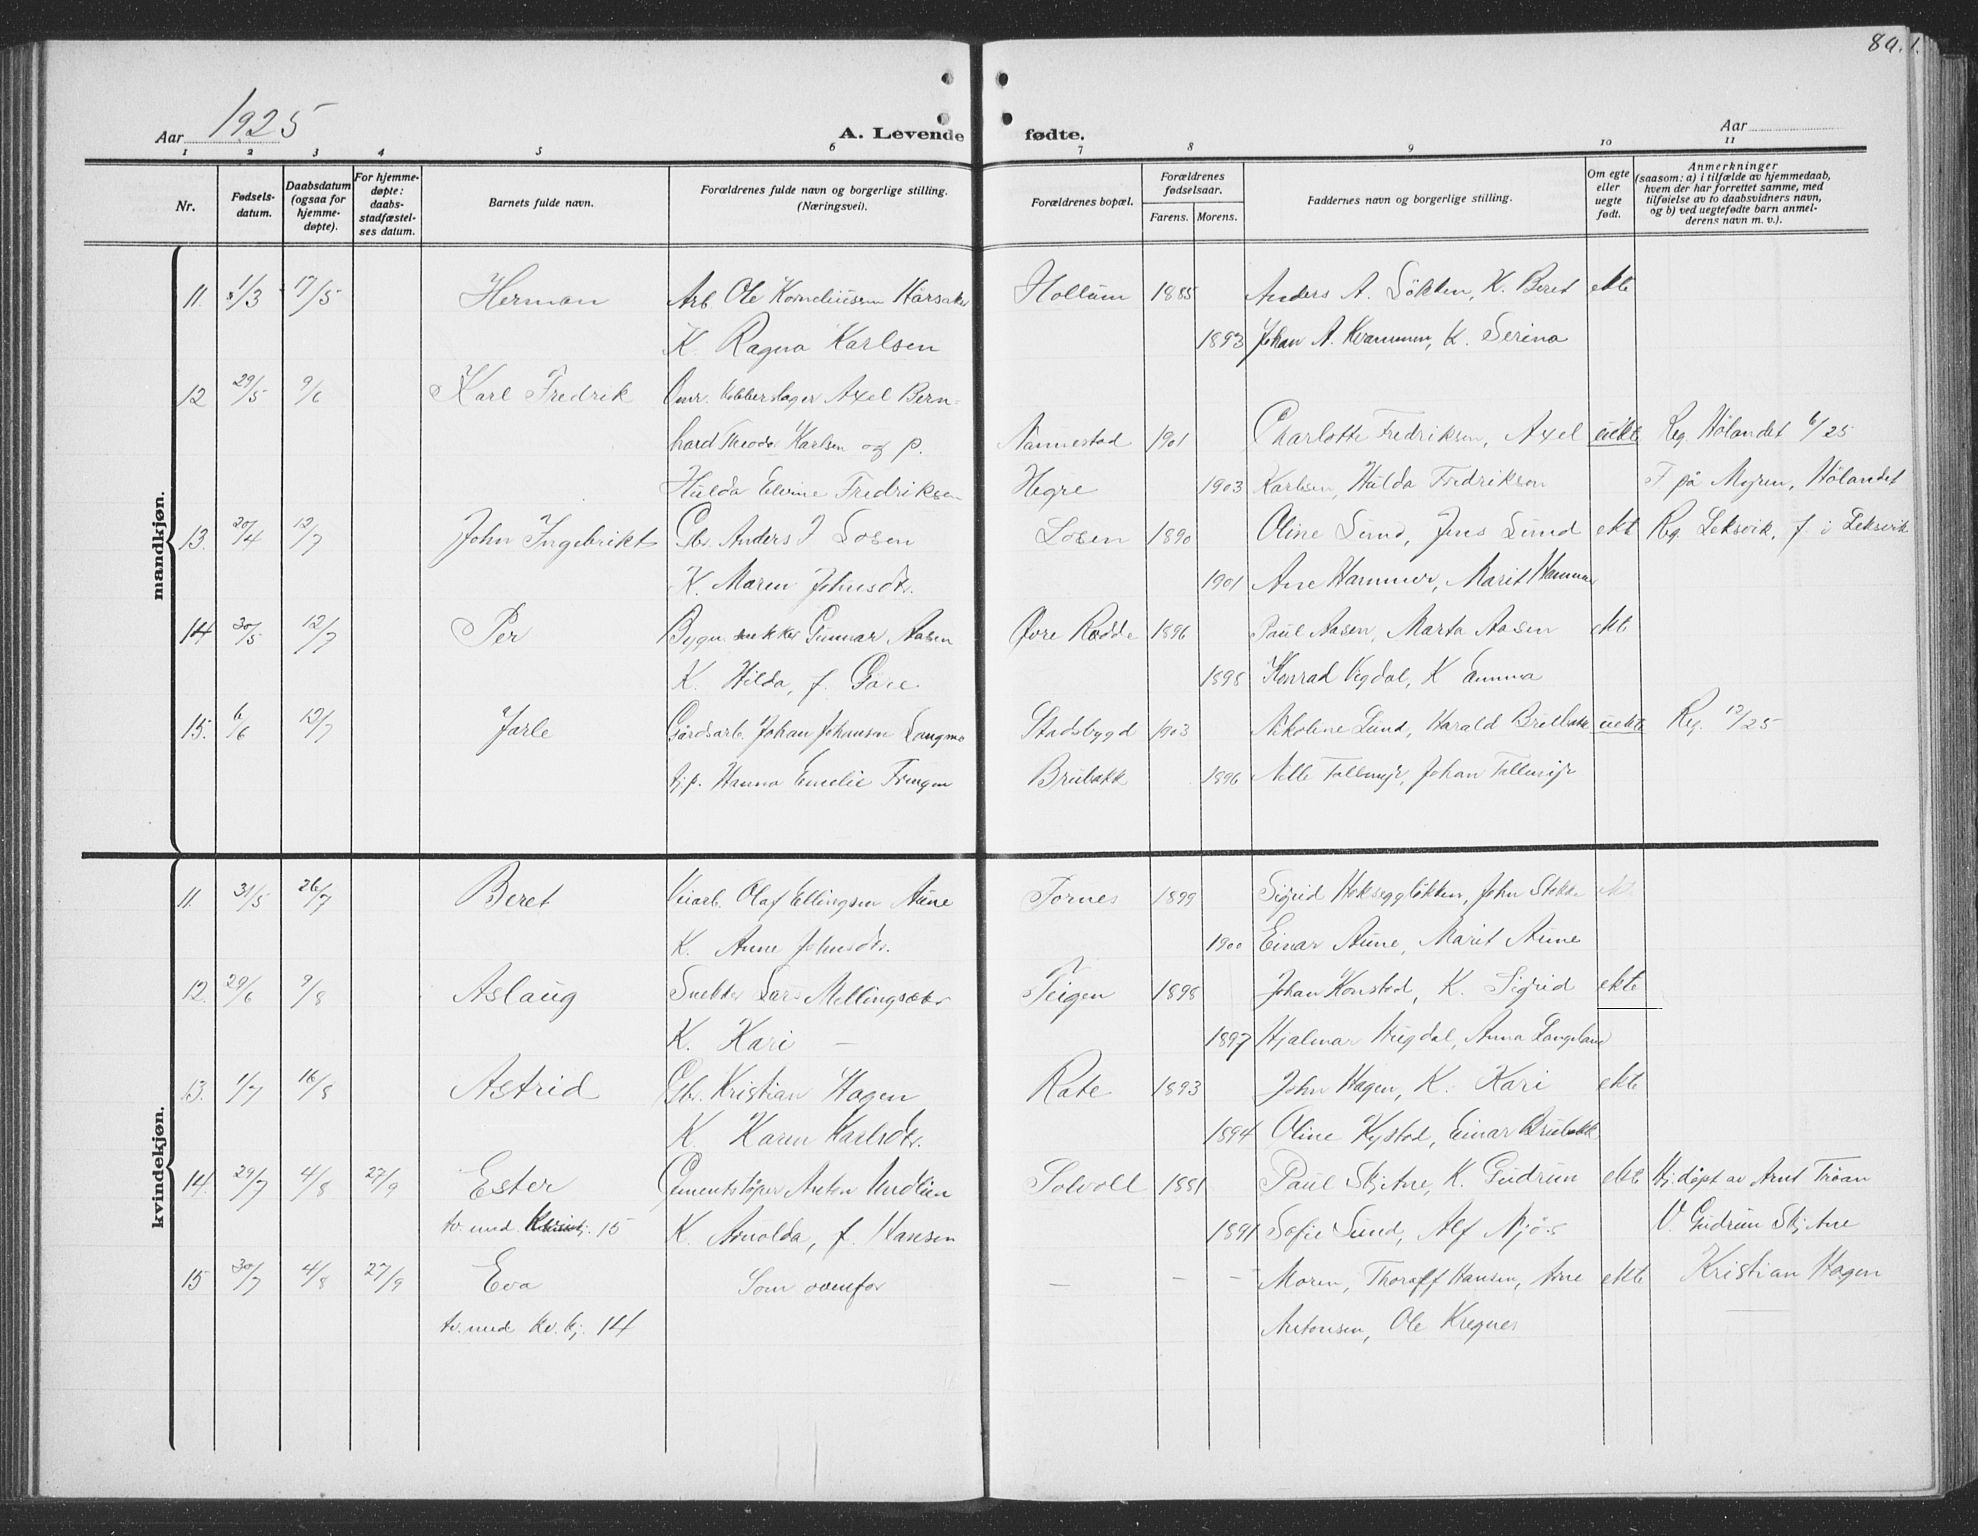 89.1.
Aar 1925 A. Levende fødte. Aar
1 2 3 4 5 6 7 8 9 10 11
Nr. Fødsels-datum. Daabsdatum (ogsaa for hjemme-døpte). For hjemme-døpte: daabs-stadfæstel-ses datum. Barnets fulde navn. Forældrenes fulde navn og borgerlige stilling. (Næringsvei). Forældrenes bopæl. Forældrenes fødselsaar. Farens. Morens. Faddernes navn og borgerlige stilling. Om egte eller uegte født. Anmerkninger (saasom: a) i tilfælde av hjemmedaab, hvem der har forrettet samme, med tilføielse av to daabsvidners navn, og b) ved uegtefødte barn anmel-derens navn m. v.).
mandkjøn.
11. 31/3 17/5 Herman Arb. Ole Korneliussen Hårsaker Hollum 1885 Anders A. Løkken, K. Beret ekte
K. Ragna Karlsen 1893 Johan A. Kvammen, K. Serina
12 29/5 9/6 Karl Fredrik Omr. Kobberslager Axel Bern-
hard Theodor Karlsen og p. Nannestad 1901 Charlotte Fredriksen, Axel uekte Reg. Hølandet 6/25
Hulda Elvine Fredriksen Hegre 1903 Karlsen, Hulda Fredriksen F på Myren, Hølandet
13. 20/4 12/7 John Ingebrikt Gbr. Anders J Losen Losen 1890 Oline Lund, Jens Lund ekt Reg. Leksvik, f. i Leksvik
K. Maren Johnsdtr. 1901 Ane Hammer, Marit Hammer
14 30/5 12/7 Per Bygn. snekker Gunnar Aasen Øvre Rødde 1896 Paul Aasen, Marta Aasen ekte
K. Hilda, f. Gåre 1898 Konrad Vigdal, K Emma
15. 6/6 12/7 Jarle Gårdsarb. Johan Johansen Langmo Stadsbygd 1903 Nikoline Lund, Harald Brubakk uekte Reg. 12/25
Hanna Emelie Brubakk 1896 Nelle Tallmyr, Johan Tallmyr
kvindekjøn.
11. 31/5 26/7 Beret Veiarb. Olaf Ellingsen Aune Tornes 1899 Sigrid Hekseggløkken, John Stokke ekt.
K. Anne Johnsdtr. 1900 Einar Aune, Marit Aune
12. 29/6 9/8 Aslaug Snekker Lars Mellingsæter Teigen 1898 Johan Konstad, K. Sigrid ekte
K. Kari — 1897 Hjalmar Hugdal, Anna Langeland
13. 1/7 16/8 Astrid Gbr. Kristian Hagen Rate 1893 John Hagen, K. Kari ekte
K. Karen Karlsdtr. 1894 Oline Kystad, Einar Brubakk
14. 29/7 4/8 27/9 Ester Cementstøper Anton Undlien Solvoll 1881 Paul Skjetne, K. Gudrun ekte Hj. døpt av Arnt Trøan
tv. med kv.kj. 15 K. Arnolda, f. Hansen 1891 Sofie Lund, Alf Njøs V. Gudrun Skjetne
15 30/7 4/8 27/9 Eva Som ovenfor — — — Moren, Thoralf Hansen, Arne ekte Kristian Hagen
tv. med kv. kj. 14 Antonsen, Ole Kregnes